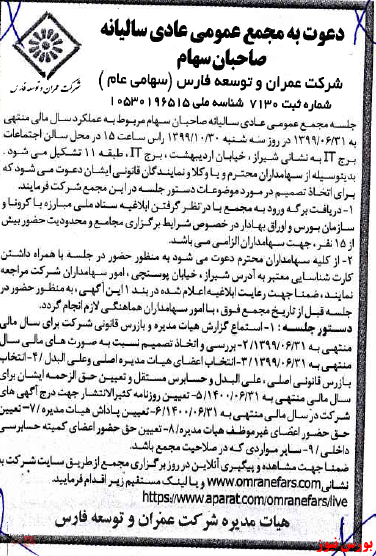 دعوت به مجمع عمومی عادی سالیانه
صاحبان سهام
شرکت عمران و توسعه فارس (سهامی عام)
شماره ثبت ۷۱۳۰ شناسه ملی ۱۰۵۳۰۱۹۶۵۱۵
شرکت عمران و توسعه فارس
جلسه مجمع عمومی عادی سالیانه صاحبان سهام مربوط به عملکرد سال مالی منتهی
به ۱۳۹۹/۰۶/۳۱ در روز سه شنبه ۱۳۹۹/۱۰/۳۰ راس ساعت ۱۵ در محل سالن اجتماعات
برج IT به نشانی شیراز، خیابان اردیبهشت، برج IT، طبقه ۱۱ تشکیل می شود.
بدینوسیله از سهامداران محترم و یا وکلا و نمایندگان قانونی ایشان دعوت می شود که
برای اتخاذ تصمیم در مورد موضوعات دستور جلسه در این مجمع شرکت فرمایند.
۱- دریافت برگه ورود به مجمع با در نظر گرفتن ابلاغیه ستاد ملی مبارزه با کرونا و
سازمان بورس و اوراق بهادار در خصوص شرایط برگزاری مجامع و محدودیت حضور بیش
از ۱۵ نفر، جهت سهامداران الزامی می باشد.
۲- از کلیه سهامداران محترم دعوت می شود به منظور حضور در جلسه با همراه داشتن
کارت شناسایی معتبر به آدرس شیراز، خیابان پوسنچی، امور سهامداران شرکت مراجعه
نمایند، ضمنا جهت رعایت ابلاغیه اعلام شده در بند ۱ این آگهی، به منظور حضور در
جلسه قبل از تاریخ مجمع فوق، با امور سهامداران هماهنگی لازم انجام گردد.
دستور جلسه: ۱- استماع گزارش هیات مدیره و بازرس قانونی شرکت برای سال مالی
منتهی به ۱۳۹۹/۰۶/۳۱ ۲- بررسی و اتخاذ تصمیم نسبت به صورت های مالی سال
منتهی به ۱۳۹۹/۰۶/۳۱ ۳- انتخاب اعضای هیات مدیره اصلی وعلی البدل /۴- انتخاب
بازرس قانونی اصلی، علی البدل و حسابرس مستقل و تعیین حق الزحمه ایشان برای
سال مالی منتهی به ۱۴۰۰/۰۶/۳۱ ۵- تعیین روزنامه کثیرالانتشار جهت درج آگهی های
شرکت در سال مالی منتهی به ۱۴۰۰/۰۶/۳۱ ۶- تعیین پاداش هیات مدیره /۷- تعیین
حق حضور اعضای غیرموظف هیات مدیره /۸- تعیین حق حضور اعضای کمیته حسابرسی
داخلی /۹- سایر مواردی که در صلاحیت مجمع باشد.
ضمنا جهت مشاهده و پیگیری آنلاین در روز برگزاری مجمع از طریق سایت شرکت به
نشانی www.omranefars.com و یا لینک مستقیم زیر اقدام فرمایید
https://www.aparat.com/omranefars/live
هیات مدیره شرکت عمران و توسعه فارس
بورس نیوز